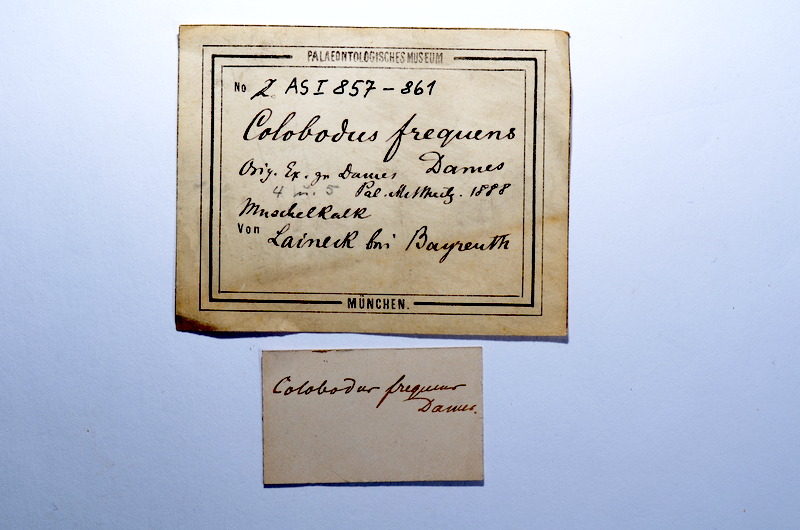 PALAEONTOLOGISCHES MUSEUM
No AS I 857-861
Colobodus frequens
Orig. Ex. zu Dames Dames
4 u. 5 Pal. 1888
Muschelkalk
Von Laineck bei Bayreuth
MÜNCHEN.
Colobodus frequens
Dames.